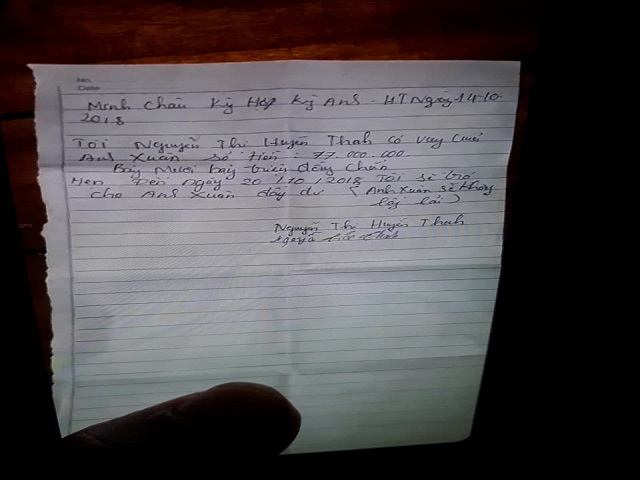 No.
Date
Minh Châu Kỳ Hợp Kỳ Anh - HT Ngày 14-10-
2018
Tôi Nguyễn Thị Huyền Thanh có vay của
Anh Xuân số tiền: 77.000.000.
Bảy Mươi bảy triệu đồng Chẵn
Hẹn Đến ngày 20/10/2018 Tôi sẽ trả
cho Anh Xuân đầy đủ (Anh Xuân sẽ không
lấy lãi)
Nguyễn Thị Huyền Thanh